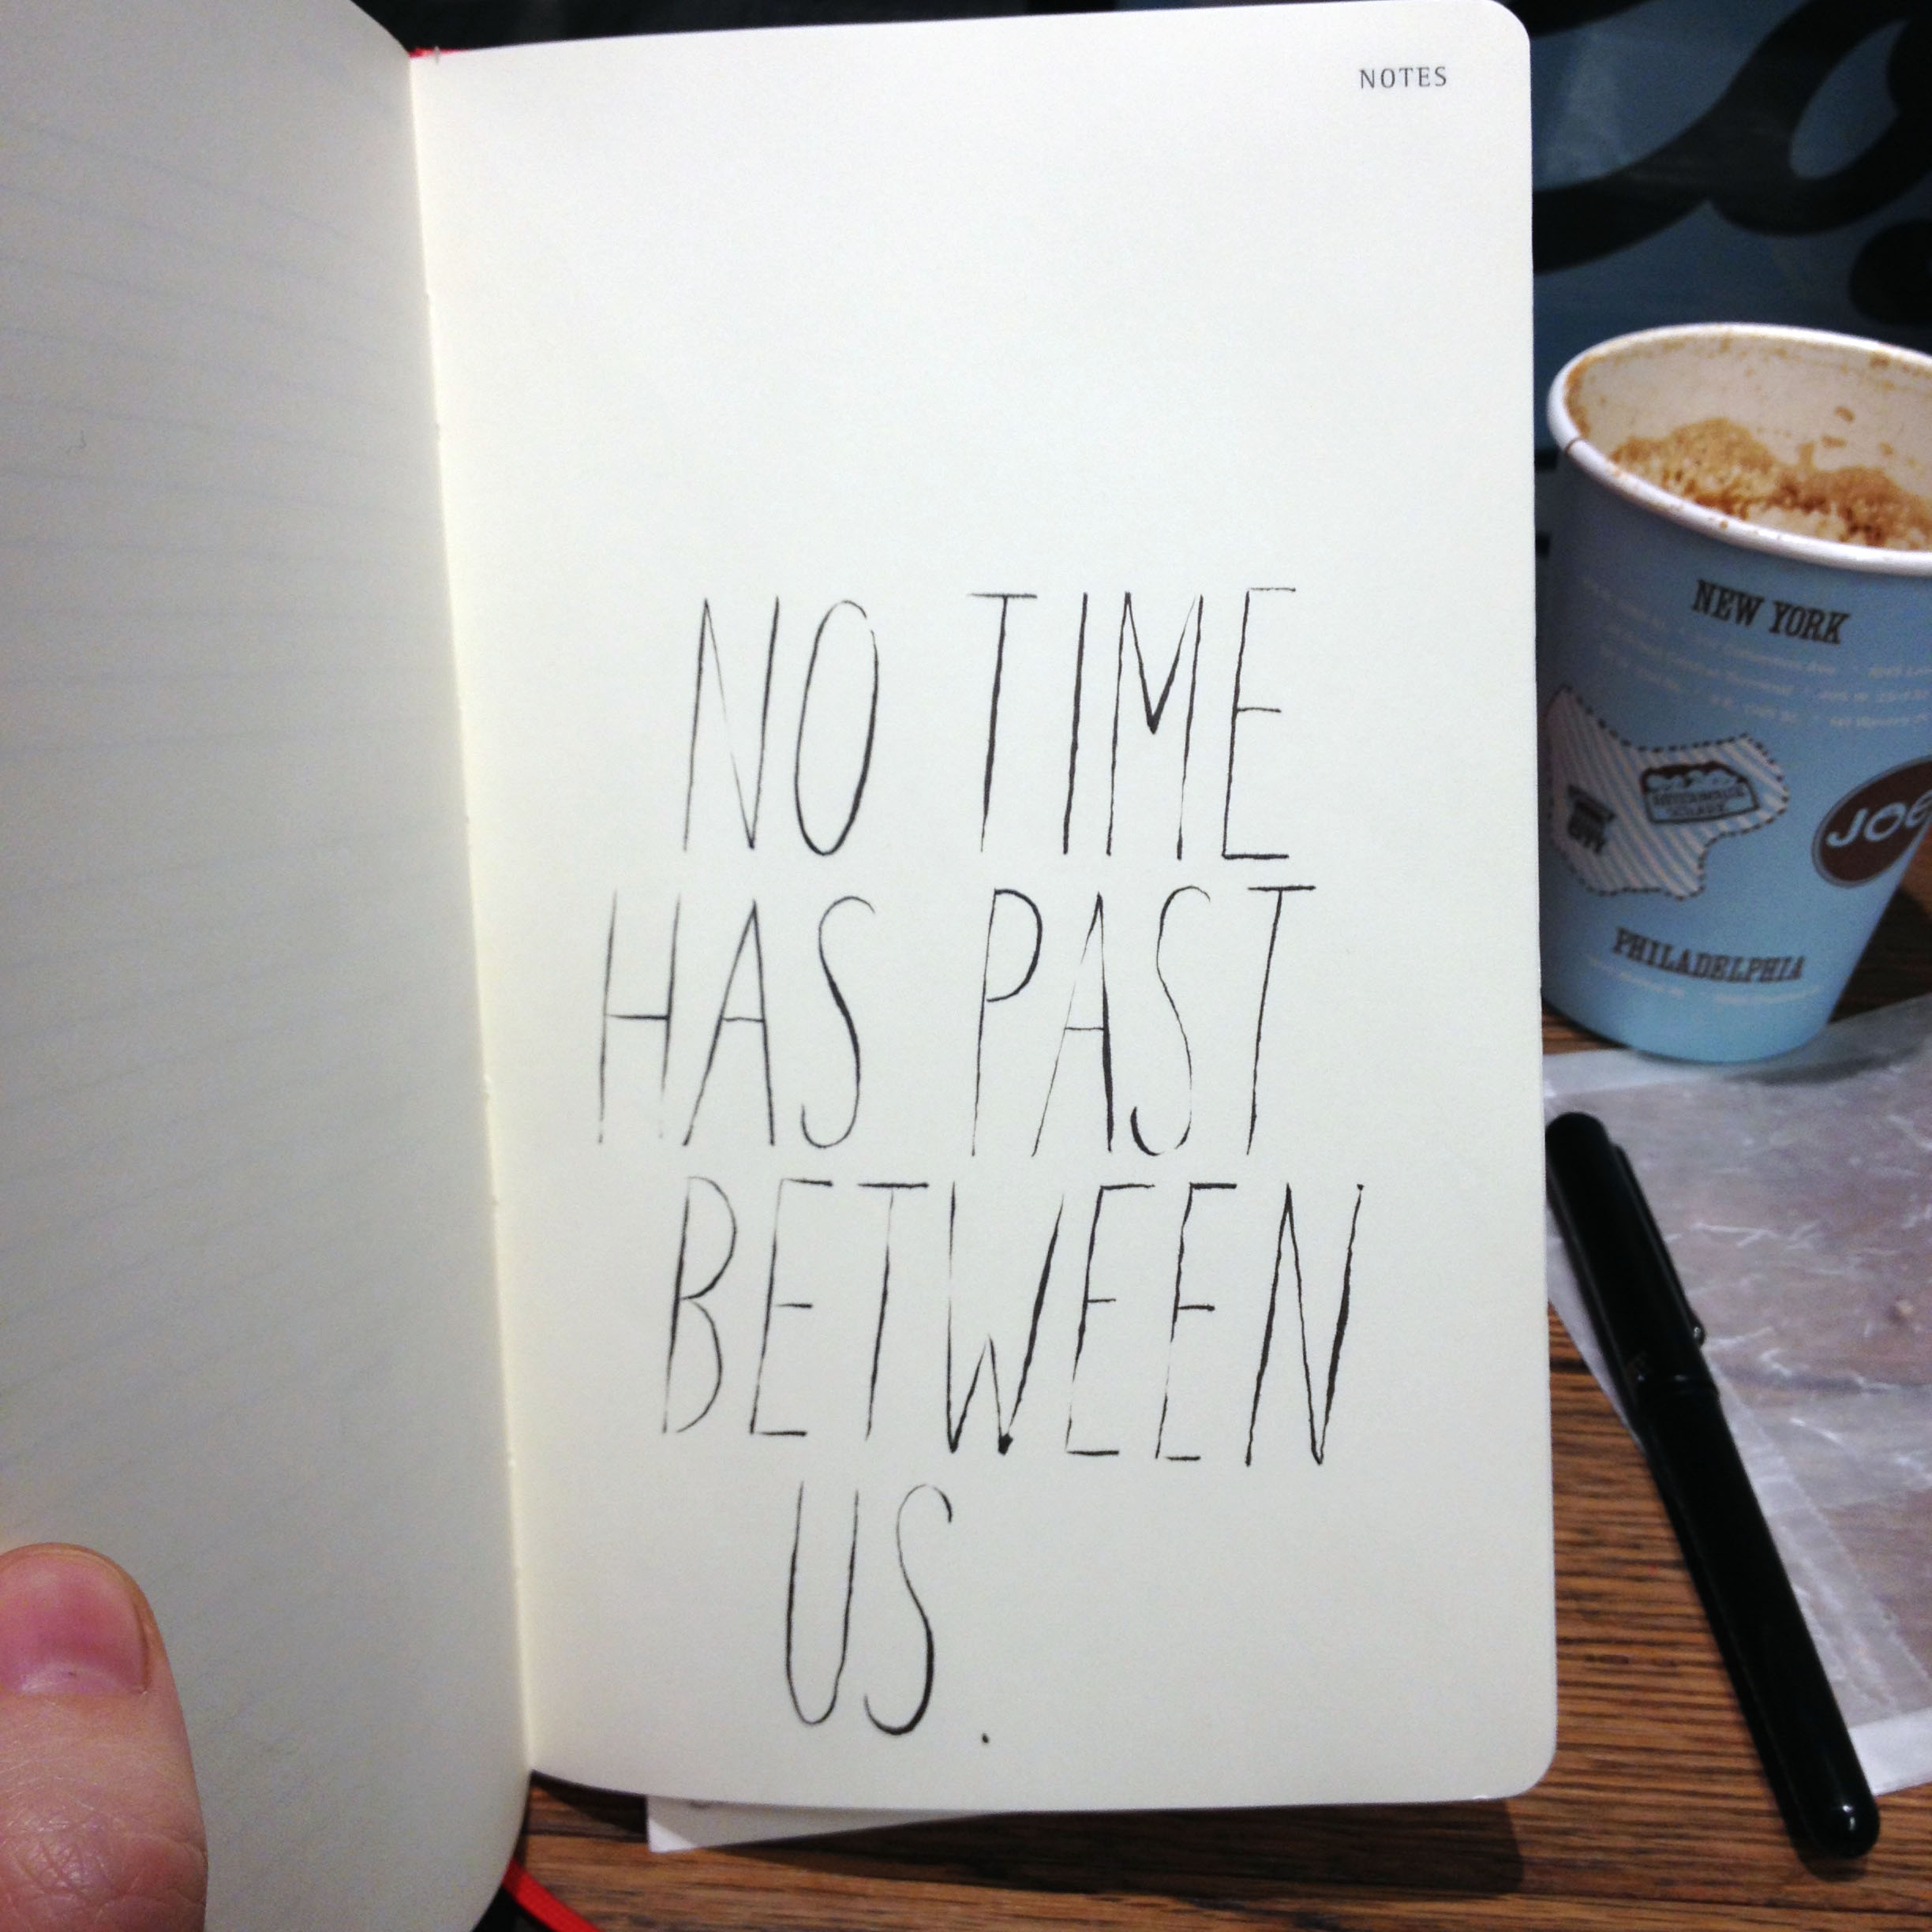 NOTES
NO TIME
HAS PAST
BETWEEN
US.
NEW YORK
JOE
PHILADELPHIA